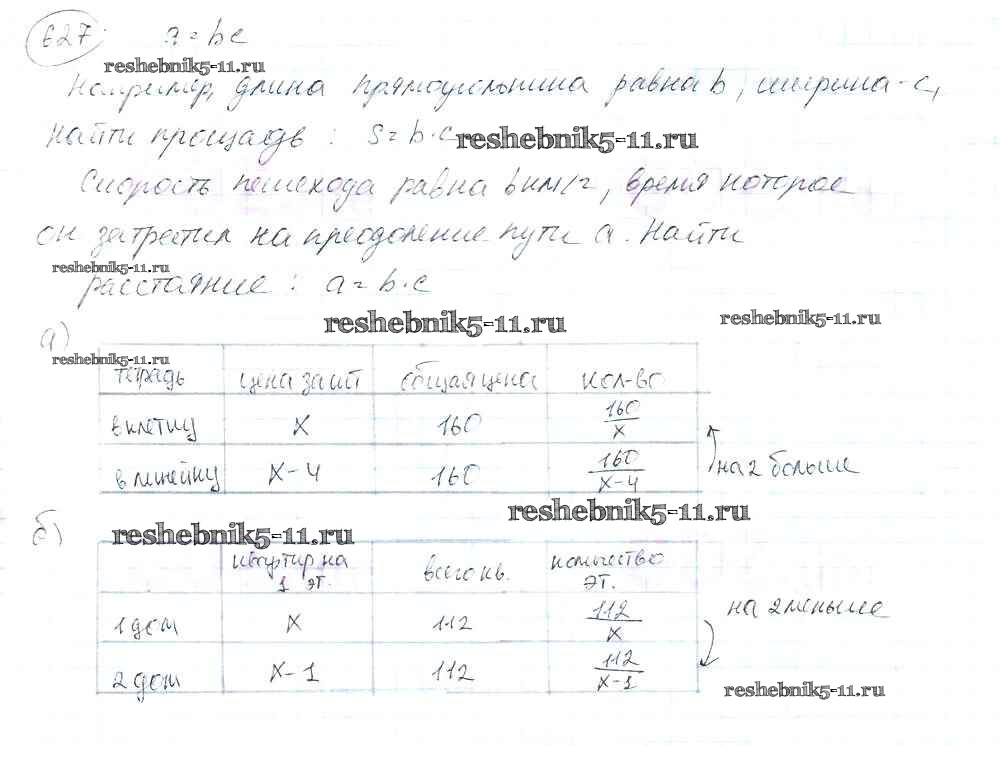 627. a = bc
reshebnik5-11.ru
Например, длина прямоугольника равна b, ширина - c,
найти площадь : S = b · c
reshebnik5-11.ru
Скорость пешехода равна b км/ч, время которое
он затратил на преодоление пути a. Найти
reshebnik5-11.ru
расстояние : a = b · c
reshebnik5-11.ru
reshebnik5-11.ru
а)
reshebnik5-11.ru
тетрадь цена за шт общая цена кол-во
в клетку x 160 160/x
в линейку x - 4 160 160/(x - 4) на 2 больше
reshebnik5-11.ru
б) reshebnik5-11.ru
квартир на 1 эт. всего кв. количество эт.
1 дом x 112 112/x на 2 меньше
2 дом x - 1 112 112/(x - 1)
reshebnik5-11.ru